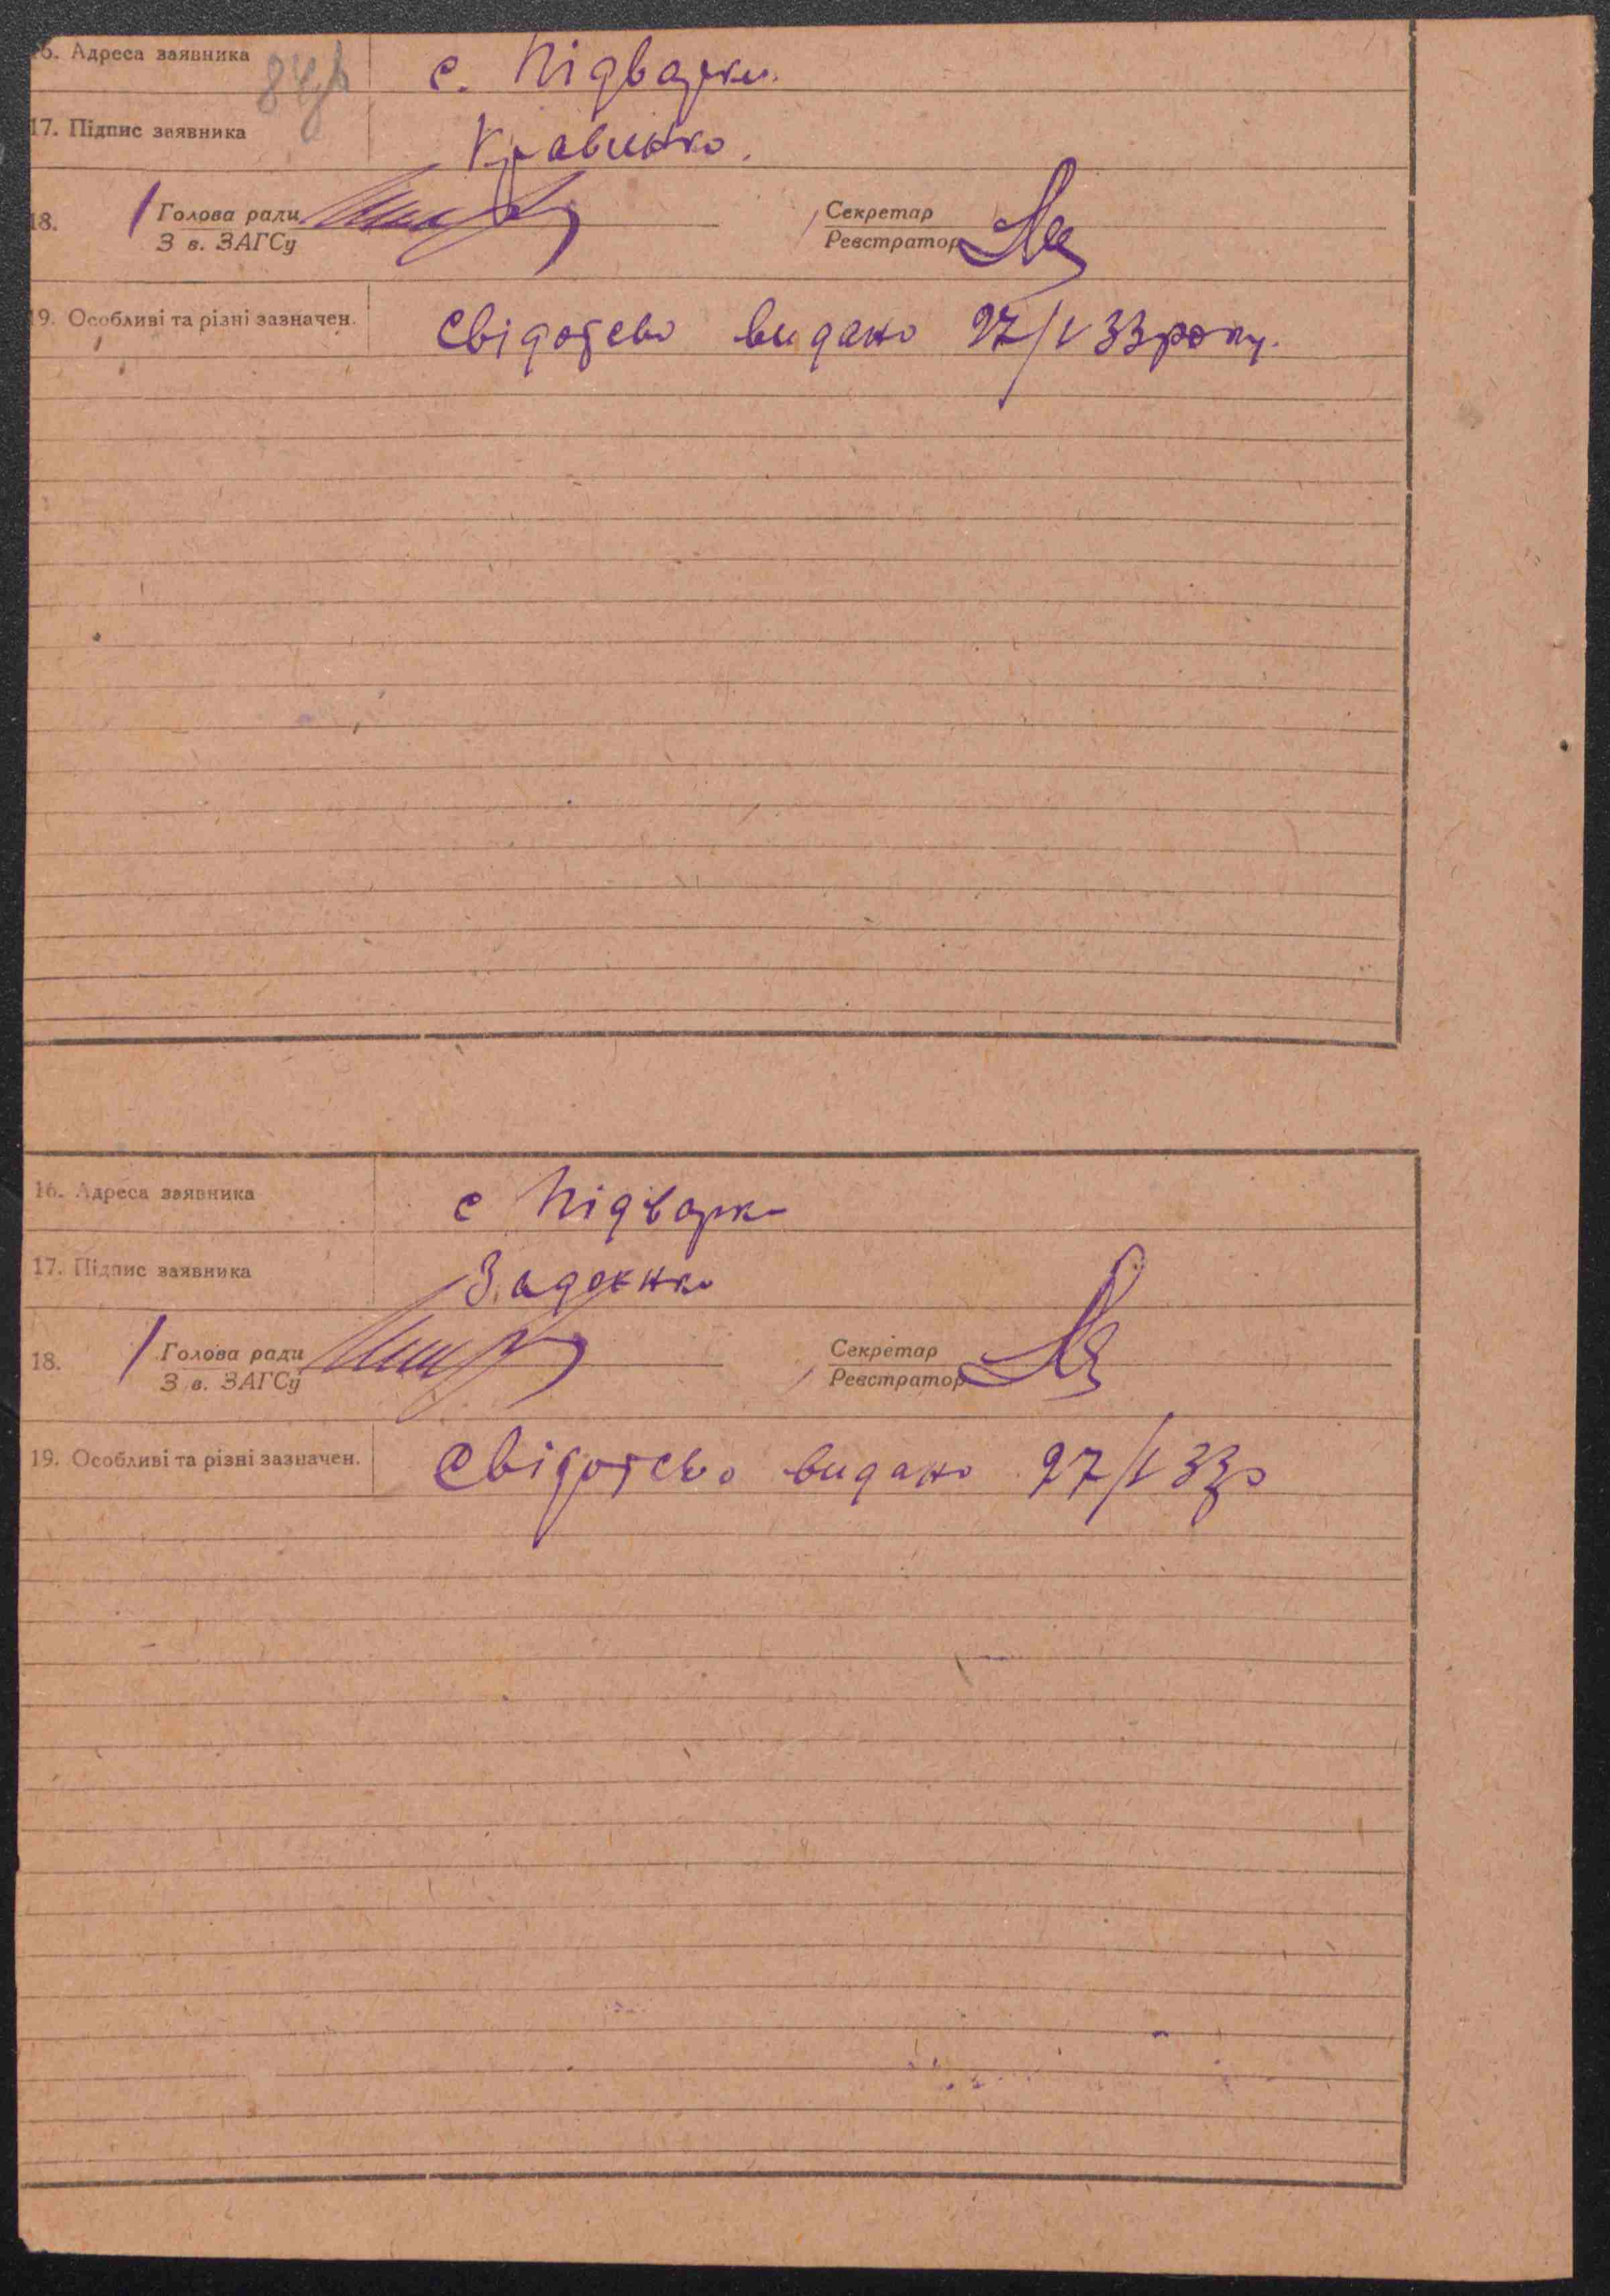 16. Адреса заявника с. Підварки.
17. Підпис заявника Кравинко.
18. Голова ради Секретар
З в. ЗАГСу Реєстратор
19. Особливі та різні зазначен. Свідотсво видано 27/I 33 року.
16. Адреса заявника с Підварки
17. Підпис заявника Задоєнко
18. Голова ради Секретар
З в. ЗАГСу Реєстратор
19. Особливі та різні зазначен. Свідотсво видано 27/I 33р